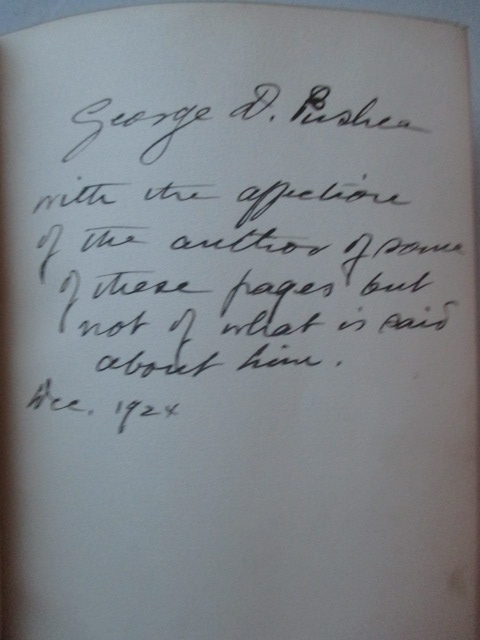 George D. Pushee
with the affection
of the author of some
of these pages but
not of what is said
about him.
Dec. 1924